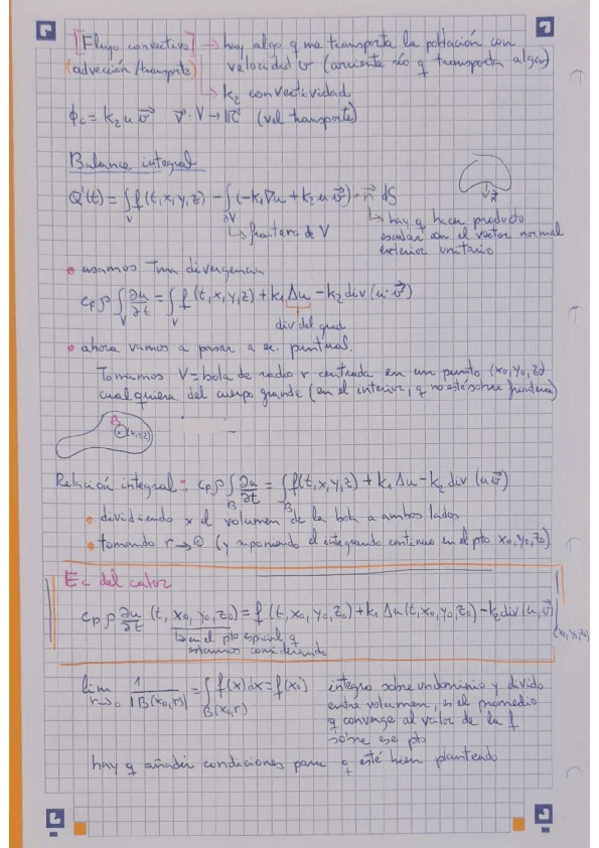 [Flujo convectivo] → hay algo q me transporta la población con
(advección/transporte) velocidad v (corriente río q transporta algas)
↳ k₂ convectividad
ϕc = k₂ u v⃗ v⃗: V → ℝ³ (vel transporte)
Balance integral
Q'(t) = ∫_V f(t,x,y,z) - ∫_∂V (-k₁∇u + k₂ u v⃗) · n⃗ dS
↳ frontera de V
↳ hay q hacer producto
escalar con el vector normal
exterior unitario
n⃗
• usamos Tma divergencia
cpρ ∫_V ∂u/∂t = ∫_V f(t,x,y,z) + k₁ Δu - k₂ div(u·v⃗)
div del grad
• ahora vamos a pasar a ec. puntual.
Tomamos V = bola de radio r centrada en un punto (x₀,y₀,z₀)
cualquiera del cuerpo grande (en el interior, q no esté sobre frontera)
B
(x,y,z)
Relación integral: cpρ ∫_B ∂u/∂t = ∫_B f(t,x,y,z) + k₁ Δu - k₂ div (u v⃗)
• dividiendo x el volumen de la bola a ambos lados
• tomando r → 0 (y suponiendo el integrando continuo en el pto x₀,y₀,z₀)
Ec del calor
cpρ ∂u/∂t (t, x₀, y₀, z₀) = f(t, x₀, y₀, z₀) + k₁ Δu(t, x₀, y₀, z₀) - k₂ div(u, v⃗)|(x₀,y₀,z₀)
↳ en el pto espacial q
estamos considerando
lim r→0 1/|B(x₀,r)| = ∫_B(x₀,r) f(x)dx = f(x₀) integro sobre un dominio y divido
entre volumen, es el promedio
q converge al valor de la f
sobre ese pto
hay q añadir condiciones para q esté bien planteado